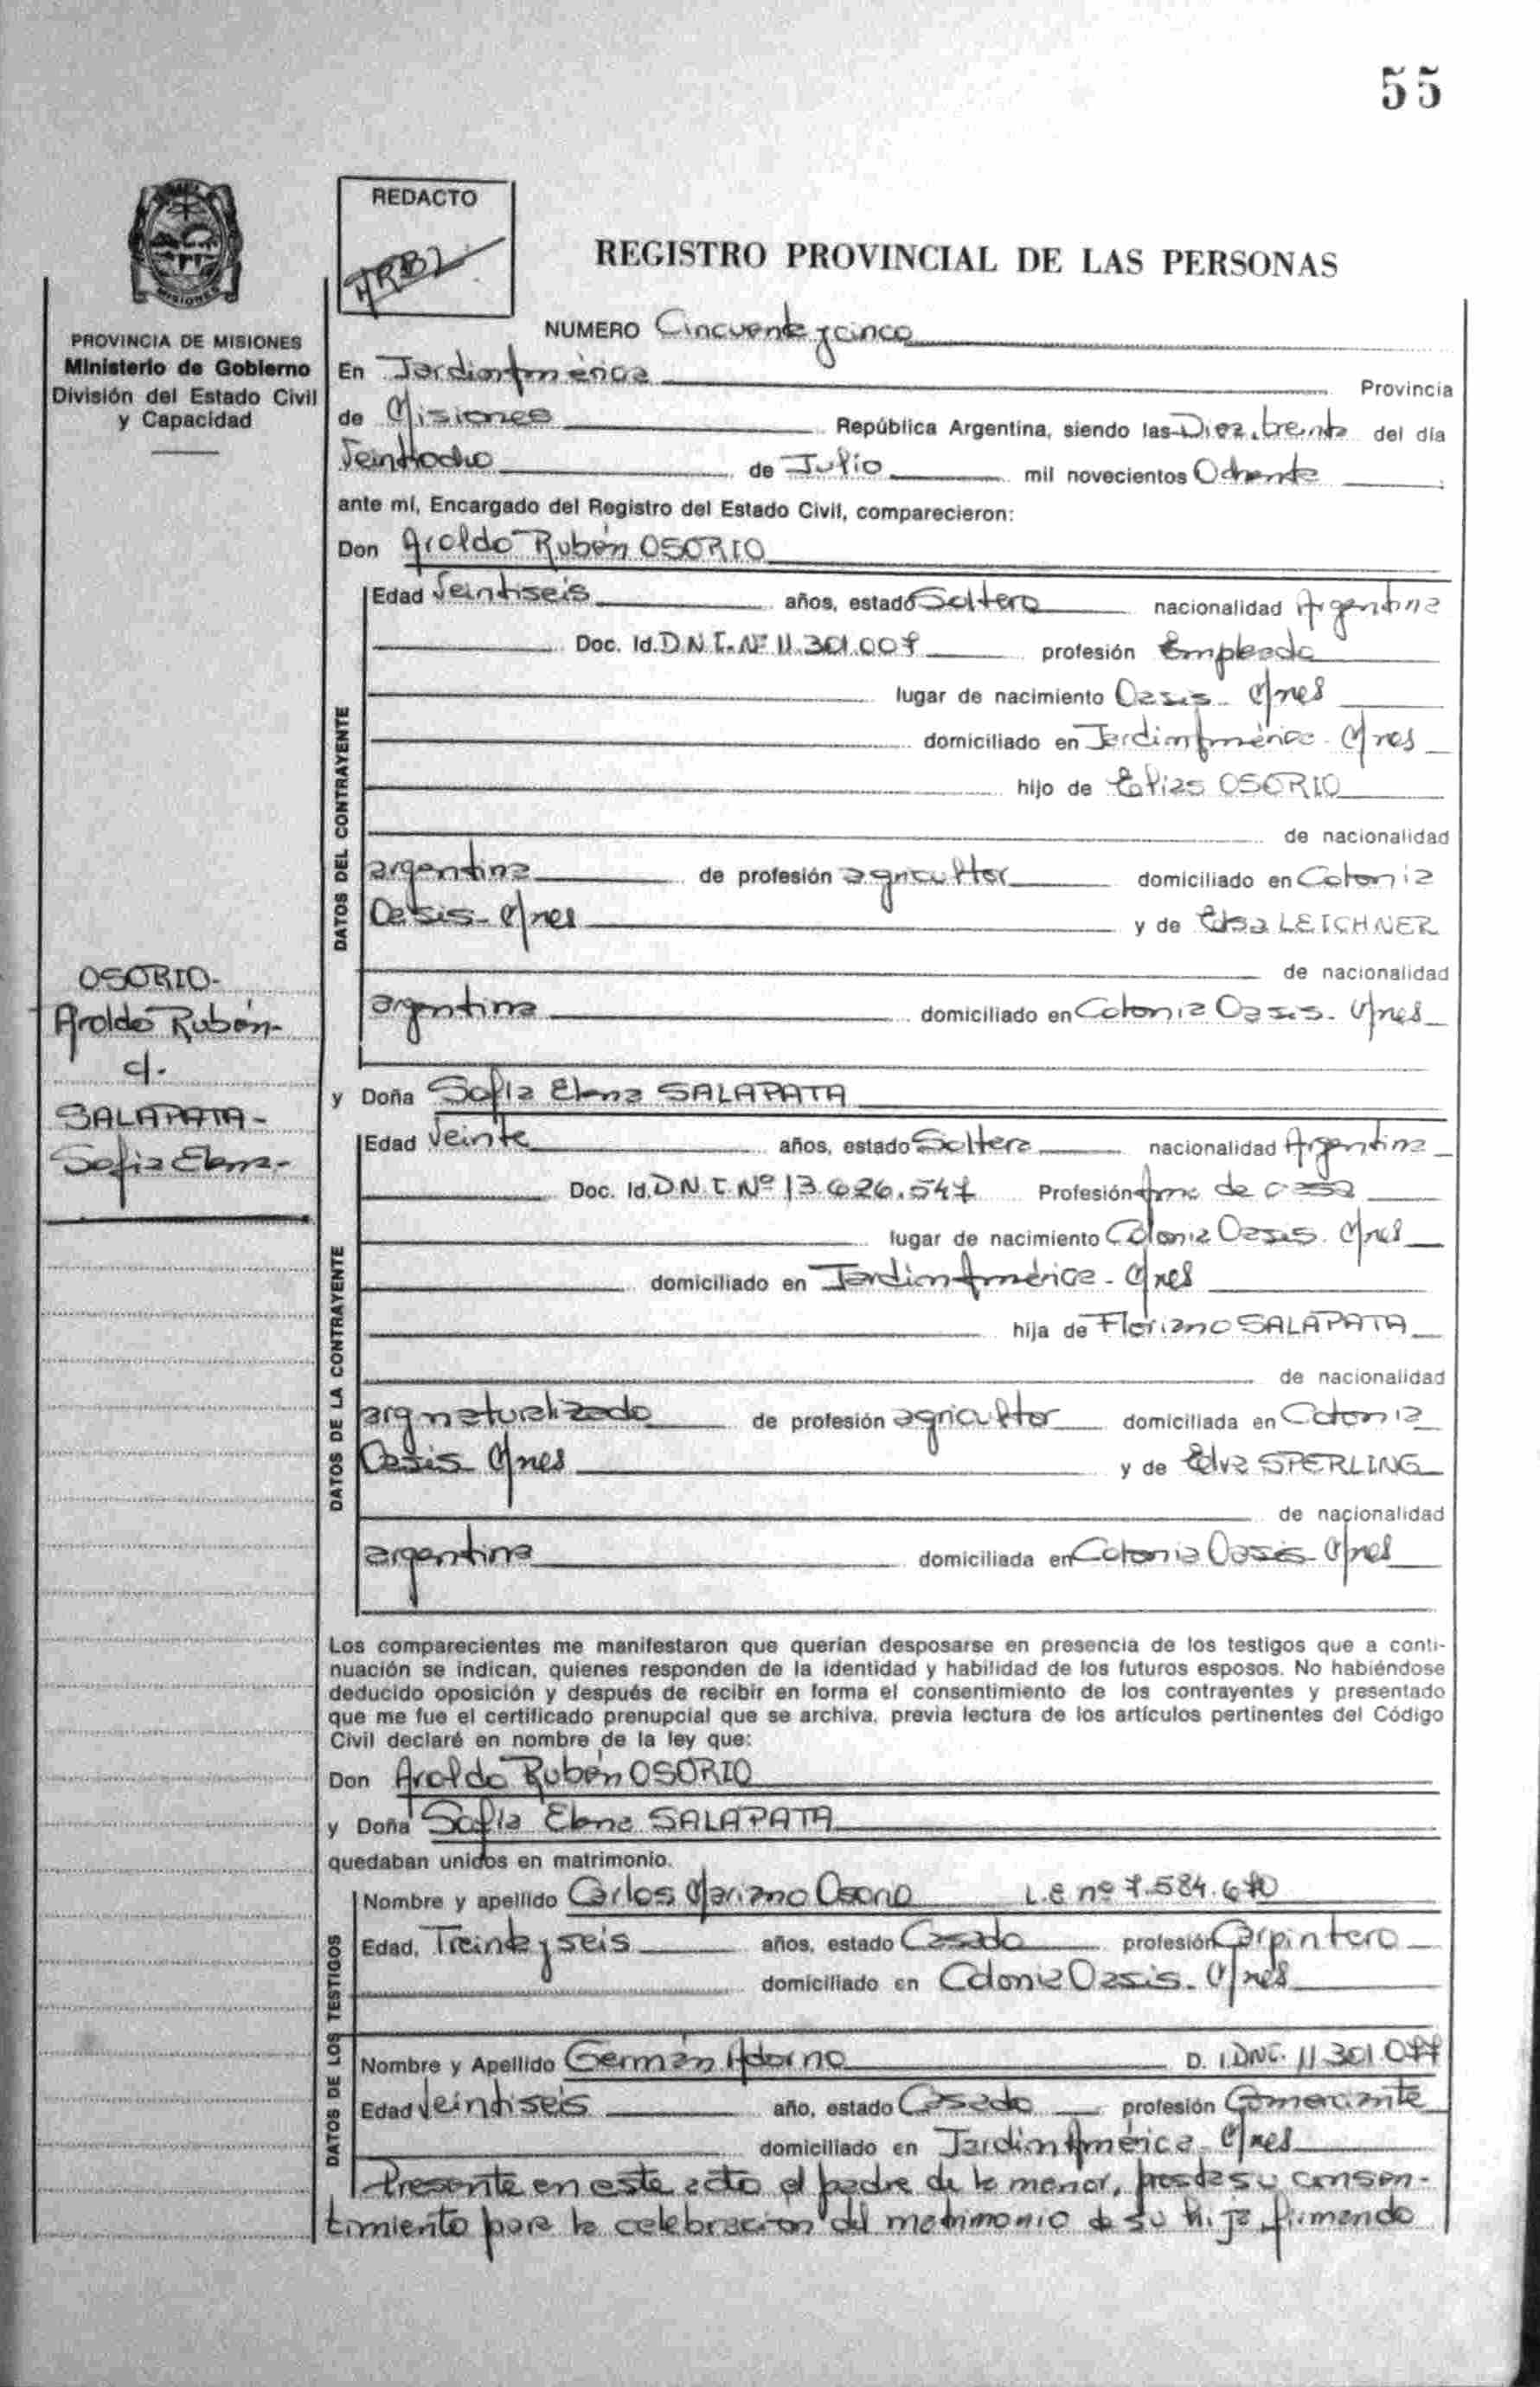 55
REDACTO
REGISTRO PROVINCIAL DE LAS PERSONAS
MISIONES
PROVINCIA DE MISIONES
Ministerio de Gobierno
División del Estado Civil
y Capacidad
NUMERO Cincuenta y cinco
En Jardin América Provincia
de Misiones República Argentina, siendo las Diez, treinta del día
Veintiocho de Julio mil novecientos Ochenta
ante mí, Encargado del Registro del Estado Civil, comparecieron:
Don Aroldo Rubén OSORIO
DATOS DEL CONTRAYENTE
Edad Veintiseis años, estado Soltero nacionalidad Argentina
Doc. Id. D.N.I. Nº 11.301.007 profesión Empleado
lugar de nacimiento Oasis - Mnes
domiciliado en Jardin América - Mnes
hijo de Elias OSORIO
de nacionalidad
argentina de profesión agricultor domiciliado en Colonia
Oasis - Mnes y de Elsa LEICHNER
de nacionalidad
argentina domiciliado en Colonia Oasis - Mnes
OSORIO-
Aroldo Rubén-
c/.
SALAPATA-
Sofia Elena-
y Doña Sofia Elena SALAPATA
DATOS DE LA CONTRAYENTE
Edad Veinte años, estado Soltera nacionalidad Argentina
Doc. Id. D.N.I. Nº 13.626.547 Profesión Ama de casa
lugar de nacimiento Colonia Oasis - Mnes
domiciliado en Jardin América - Mnes
hija de Floriano SALAPATA
de nacionalidad
arg naturalizado de profesión agricultor domiciliada en Colonia
Oasis Mnes y de Elva SPERLING
de nacionalidad
argentina domiciliada en Colonia Oasis - Mnes
Los comparecientes me manifestaron que querían desposarse en presencia de los testigos que a conti-
nuación se indican, quienes responden de la identidad y habilidad de los futuros esposos. No habiéndose
deducido oposición y después de recibir en forma el consentimiento de los contrayentes y presentado
que me fue el certificado prenupcial que se archiva, previa lectura de los artículos pertinentes del Código
Civil declaré en nombre de la ley que:
Don Aroldo Rubén OSORIO
y Doña Sofia Elena SALAPATA
quedaban unidos en matrimonio.
DATOS DE LOS TESTIGOS
Nombre y apellido Carlos Mariano Osorio L.E nº 7.584.670
Edad, Treinta y seis años, estado Casado profesión Carpintero
domiciliado en Colonia Oasis - Mnes
Nombre y Apellido Germán Adorno D. I. DNI. 11 301.077
Edad Veintiseis año, estado Casado profesión Comerciante
domiciliado en Jardin América - Mnes
Presente en este acto el padre de la menor, presta su consen-
timiento para la celebracion del matrimonio de su hija firmando